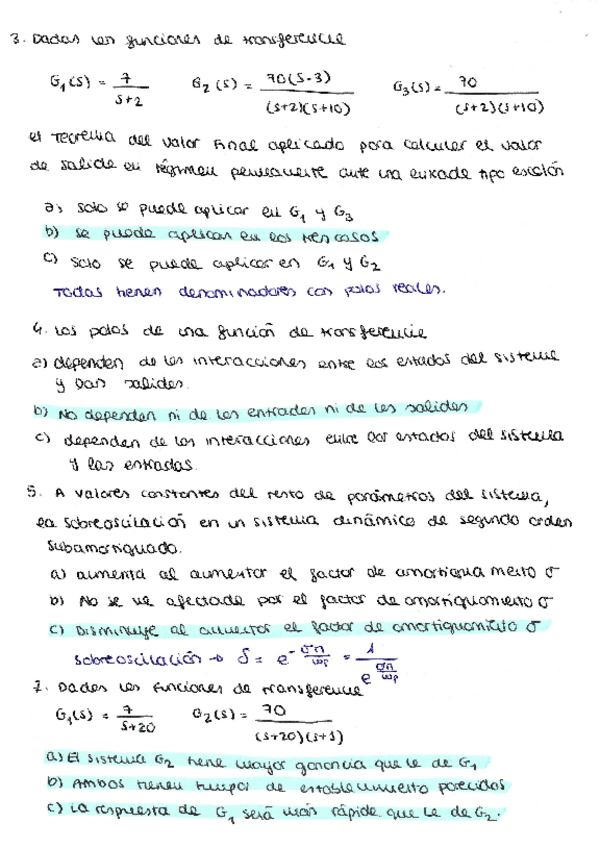 3. Dadas las funciones de transferencia
G₁(s) = 7/(s+2)   G₂(s) = 70(s-3)/((s+2)(s+10))   G₃(s) = 70/((s+2)(s+10))
el Teorema del valor Final aplicado para calcular el valor
de salida en régimen permanente ante una entrada tipo escalón
a) solo se puede aplicar en G₁ y G₃
b) se puede aplicar en los tres casos
c) solo se puede aplicar en G₁ y G₂
Todas tienen denominadores con polos reales.
4. Los polos de una función de transferencia
a) dependen de las interacciones entre los estados del sistema
y las salidas.
b) No dependen ni de las entradas ni de las salidas
c) dependen de las interacciones entre los estados del sistema
y las entradas.
5. A valores constantes del resto de parámetros del sistema,
la sobreoscilación en un sistema dinámico de segundo orden
subamortiguado.
a) aumenta al aumentar el factor de amortiguamiento σ
b) No se ve afectada por el factor de amortiguamiento σ
c) Disminuye al aumentar el factor de amortiguamiento σ
sobreoscilación → δ = e^(-σπ/ωp) = 1/e^(σπ/ωp)
7. Dadas las funciones de transferencia
G₁(s) = 7/(s+20)   G₂(s) = 70/((s+20)(s+1))
a) El sistema G₂ tiene mayor ganancia que la de G₁
b) Ambos tienen tiempos de establecimiento parecidos
c) La respuesta de G₁ será más rápida que la de G₂.